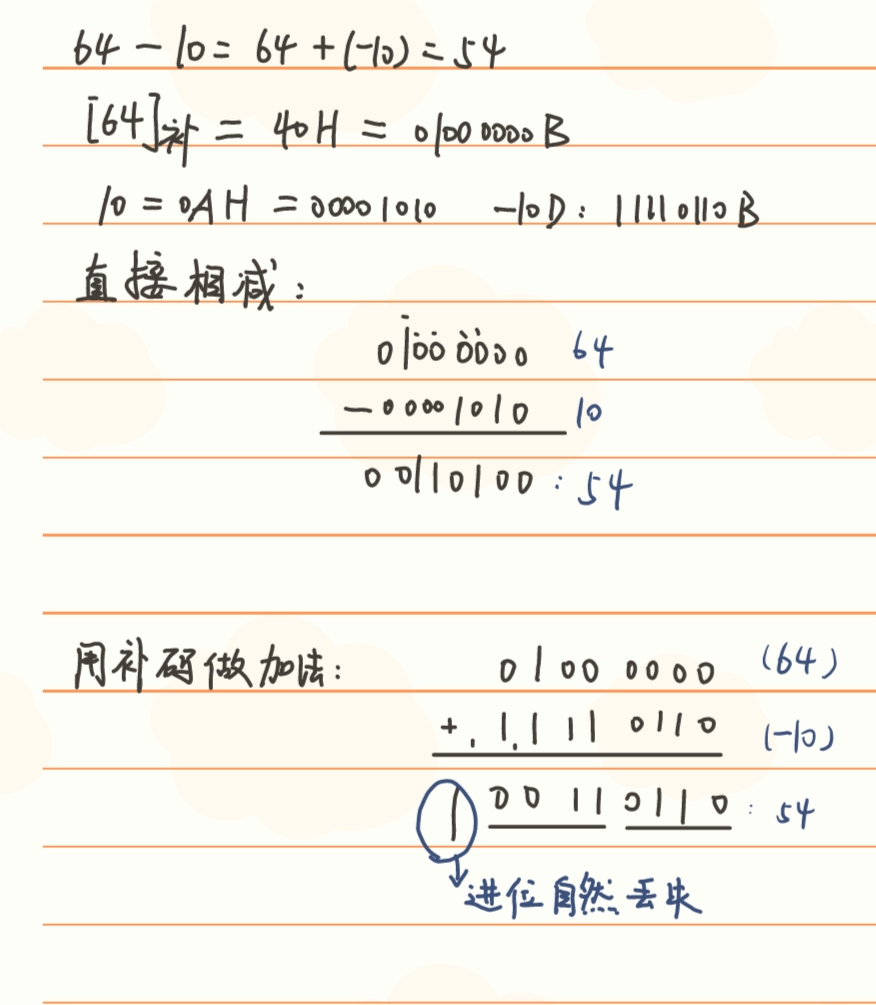 64 - 10 = 64 + (-10) = 54
[64]补 = 40H = 0100 0000B
10 = 0AH = 00001010 -10D: 11110110B
直接相减:
0100 0000 64
- 00001010 10
00110100: 54
用补码做加法:
0100 0000 (64)
+ 1111 0110 (-10)
1 0011 0110: 54
进位自然丢失